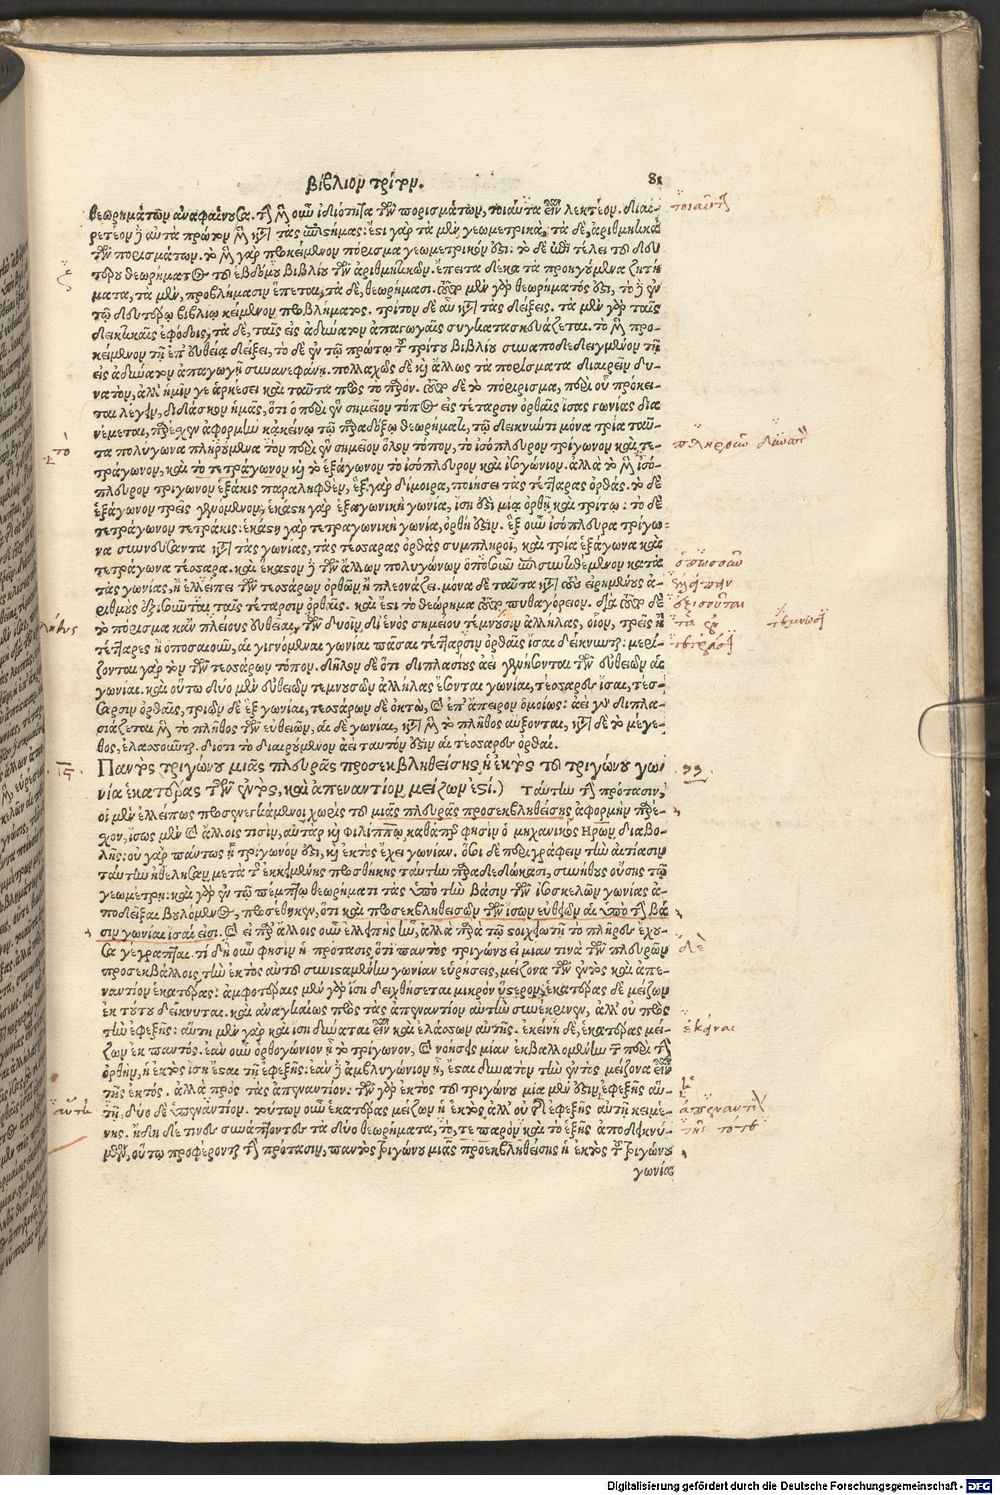 βιβλίον τρίτον. 81
θεωρημάτων ἀναφαίνουσα. τὴν μὲν οὖν ἰδιότητα τῶν πορισμάτων, τοιαῦτα εἶναι λεκτέον. διαι-
ρετέον δὲ αὐτὰ πρῶτον μὲν κατὰ τὰς ἐπιστήμας: ἔστι γὰρ τὰ μὲν γεωμετρικὰ, τὰ δὲ, ἀριθμητικὰ
τῶν πορισμάτων. τὸ μὲν γὰρ προκείμενον πόρισμα γεωμετρικόν ἐστι. τὸ δὲ ἐπὶ τέλει τοῦ δευ
τέρου θεωρήματος τοῦ ἑβδόμου βιβλίου τῶν ἀριθμητικῶν. ἔπειτα δὲ κατὰ τὰ προηγούμενα ζητή
ματα, τὰ μὲν, προβλήμασιν ἕπεται, τὰ δὲ, θεωρήμασι. τοῦτο μὲν γὰρ θεωρήματός ἐστι, τὸ δὲ ἐν
τῷ δευτέρῳ βιβλίῳ κείμενον προβλήματος. τρίτον δὲ αὖ κατὰ τὰς δείξεις. τὰ μὲν γὰρ ταῖς
δεικτικαῖς ἐφόδοις, τὰ δὲ, ταῖς εἰς ἀδύνατον ἀπαγωγαῖς συγκατασκευάζεται. τὸ μὲν προ-
κείμενον τῇ ἐπ' εὐθείας δείξει, τὸ δὲ ἐν τῷ πρώτῳ τοῦ τρίτου βιβλίου συναποδεδειγμένον τῇ
εἰς ἀδύνατον ἀπαγωγῇ συνανεφάνη. πολλαχῶς δὲ καὶ ἄλλως τὰ πορίσματα διαιρεῖν δυ-
νατὸν, ἀλλ' ἡμῖν γε ἀρκέσει καὶ ταῦτα πρὸς τὸ παρόν. τοῦτο δὲ τὸ πόρισμα, περὶ οὗ πρόκει-
ται λέγειν, διδάσκον ἡμᾶς, ὅτι ὁ περὶ ἓν σημεῖον τόπος εἰς τέταρσιν ὀρθαῖς ἴσας γωνίας δια
νέμεται, παρέχεν ἀφορμὴν κἀκείνῳ τῷ παραδόξῳ θεωρήματι, τῷ δεικνύντι μόνα τρία ταῦ-
τα πολύγωνα πληρούμενα τὸν περὶ ἓν σημεῖον ὅλον τόπον, τὸ ἰσόπλευρον τρίγωνον καὶ, τε-
τράγωνον, καὶ τὸ τετράγωνον καὶ τὸ ἑξάγωνον τὸ ἰσόπλευρον καὶ ἰσογώνιον. ἀλλὰ τὸ μὲν ἰσό-
πλευρον τριγωνον ἑξάκις παραληφθὲν, ἓξ γὰρ δίμοιρα, ποιήσει τὰς τέτταρας ὀρθάς. τὸ δὲ
ἑξάγωνον τρεῖς γενόμενον, ἑκάστη γὰρ ἑξαγωνικὴ γωνία, ἴση ἐστὶ μιᾷ ὀρθῇ καὶ τρίτῳ: τὸ δὲ
τετράγωνον τετράκις: ἑκάστη γὰρ τετραγωνικὴ γωνία, ὀρθή ἐστιν. ἓξ οὖν ἰσόπλευρα τρίγω-
να συννεύσαντα κατὰ τὰς γωνίας, τὰς τέσσαρας ὀρθὰς συμπληροῖ, καὶ τρία ἑξάγωνα καὶ
τετράγωνα τέσσαρα. καὶ ἕκαστον δὲ τῶν ἄλλων πολυγώνων ὁποσοῦν ἐπισυντιθέμενον κατὰ
τὰς γωνίας, ἢ ἐλλείπει τῶν τεσσάρων ὀρθῶν ἢ πλεονάζει. μόνα δὲ ταῦτα κατὰ τοὺς εἰρημένους ἀ-
ριθμοὺς ἐξισοῦται ταῖς τέταρσιν ὀρθαῖς. καὶ ἔστι τὸ θεώρημα τοῦτο πυθαγόρειον. διὰ τοῦτο δὲ
τὸ πόρισμα κἂν πλείους εὐθεῖαι, τῶν δυοῖν, δι' ἑνὸς σημείου τέμνουσιν ἀλλήλας, οἷον, τρεῖς ἢ
τέτταρες ἢ ὁποσαιοῦν, αἱ γινόμεναι γωνίαι πᾶσαι τέτταρσιν ὀρθαῖς ἴσαι δείκνυνται: μερί-
ζονται γὰρ τὸν τῶν τεσσάρων τόπον. δῆλον δὲ ὅτι διπλασίους ἀεὶ γενήσονται τῶν εὐθειῶν αἱ
γωνίαι. καὶ οὕτω δύο μὲν εὐθειῶν τεμνουσῶν ἀλλήλας ἔσονται γωνίαι, τέσσαρες ἴσαι, τέσ-
σαρσιν ὀρθαῖς, τριῶν δὲ ἓξ γωνίαι, τεσσάρων δὲ ὀκτὼ, καὶ ἐπ' ἄπειρον ὁμοίως: ἀεὶ γὰρ διπλα-
σιάζεται μὲν τὸ πλῆθος τῶν εὐθειῶν, αἱ δὲ γωνίαι, κατὰ μὲν τὸ πλῆθος αὔξονται, κατὰ δὲ τὸ μέγε-
θος, ἐλασσοῦνται. διότι τὸ διαιρούμενον ἀεὶ ταυτόν ἐστιν αἱ τέσσαρες ὀρθαί.
Παντὸς τριγώνου μιᾶς πλευρᾶς προσεκβληθείσης ἡ ἐκτὸς τοῦ τριγώνου γω
νία ἑκατέρας τῶν ἐντὸς, καὶ ἀπεναντίον, μείζων ἐστί.) Ταύτην τὴν πρότασιν,
οἱ μὲν ἐλλειπῶς προενεγκάμενοι χωρὶς τοῦ μιᾶς πλευρᾶς προσεκβληθείσης ἀφορμὴν παρέ-
χον, ἴσως μὲν καὶ ἄλλοις τισὶν, αὐτὰρ καὶ φιλίππῳ, καθάπερ φησὶν ὁ μηχανικὸς Ηρων, διαβο-
λῆς: οὐ γὰρ πάντως ᾗ τρίγωνόν ἐστι, καὶ ἐκτὸς ἔχει γωνίαν. ὅσοι δὲ περιγράφειν τὴν αἰτίασιν
ταύτην ἠθέλησαν μετὰ τῆς ἐκκειμένης προσθήκης ταύτην παραδεδώκασι, συνήθους οὔσης τῷ
γεωμέτρῃ: καὶ γὰρ ἐν τῷ πέμπτῳ θεωρήματι τὰς ὑπὸ τὴν βάσιν τῶν ἰσοσκελῶν γωνίας ἀ-
ποδεῖξαι βουλόμενος, προσέθηκεν, ὅτι καὶ προσεκβληθεισῶν τῶν ἴσων εὐθειῶν αἱ ὑπὸ τὴν βά
σιν γωνίαι ἴσαί εἰσι. καὶ εἰ παρ' ἄλλοις οὖν ἐλλιπὴς ἦν, ἀλλὰ παρὰ τῷ στοιχειωτῇ τὸ πλῆρες ἔχου
σα γέγραπται. τί δὴ οὖν φησιν ἡ πρότασις, ὅτι παντὸς τριγώνου εἰ μίαν τινὰ τῶν πλευρῶν
προσεκβάλλοις τὴν ἐκτὸς αὐτοῦ συνισταμένην γωνίαν εὑρήσεις, μείζονα τῶν ἐντὸς καὶ ἀπε-
ναντίον ἑκατέρας: ἀμφοτέραις μὲν γὰρ ἴση δειχθήσεται μικρὸν ὕστερον, ἑκατέρας δὲ μείζων
ἐκ τούτου δείκνυται. καὶ ἀναγκαίως πρὸς τὰς ἀπεναντίον αὐτὴν συνέκρινεν, ἀλλ' οὐ πρὸς
τὴν ἐφεξῆς: αὕτη μὲν γὰρ καὶ ἴση δύναται εἶναι καὶ ἐλάσσων αὐτῆς. ἐκείνη δὲ, ἑκατέρας μεί-
ζων ἐκ παντός. ἐὰν οὖν ὀρθογώνιον ᾖ τὸ τρίγωνον, καὶ νοήσῃς μίαν ἐκβαλλομένην τῶν περὶ τὴν
ὀρθὴν, ἡ ἐκτὸς ἴση ἔσται τῇ ἐφεξῆς: ἐὰν δὲ ἀμβλυγώνιον ᾖ, ἔσται δυνατὸν τὴν ἐντὸς μείζονα εἶναι
τῆς ἐκτός. ἀλλὰ πρὸς τὰς ἀπεναντίον: τῶν γὰρ ἐκτὸς τοῦ τριγώνου μία μέν ἐστιν ἐφεξῆς αὐ-
τῇ, δύο δὲ ἀπεναντίον. τούτων οὖν ἑκατέρας μείζων ἡ ἐκτὸς, ἀλλ' οὐ τῆς ἐφεξῆς αὐτῇ κειμέ-
νης. ἤδη δέ τινες συνάπτοντες τὰ δύο θεωρήματα, τό, τε παρὸν καὶ τὸ ἑξῆς ἀποδεικνύ-
μενον, οὕτω προφέρονται τὴν πρότασιν, παντὸς τριγώνου μιᾶς προσεκβληθείσης ἡ ἐκτὸς τοῦ τριγώνου
γωνία
τοιαύτην
τὸ
ὁποσαοῦν
ἐξισοῦται
ις
33
δὲ
ἐκείναι
Digitalisierung gefördert durch die Deutsche Forschungsgemeinschaft - DFG